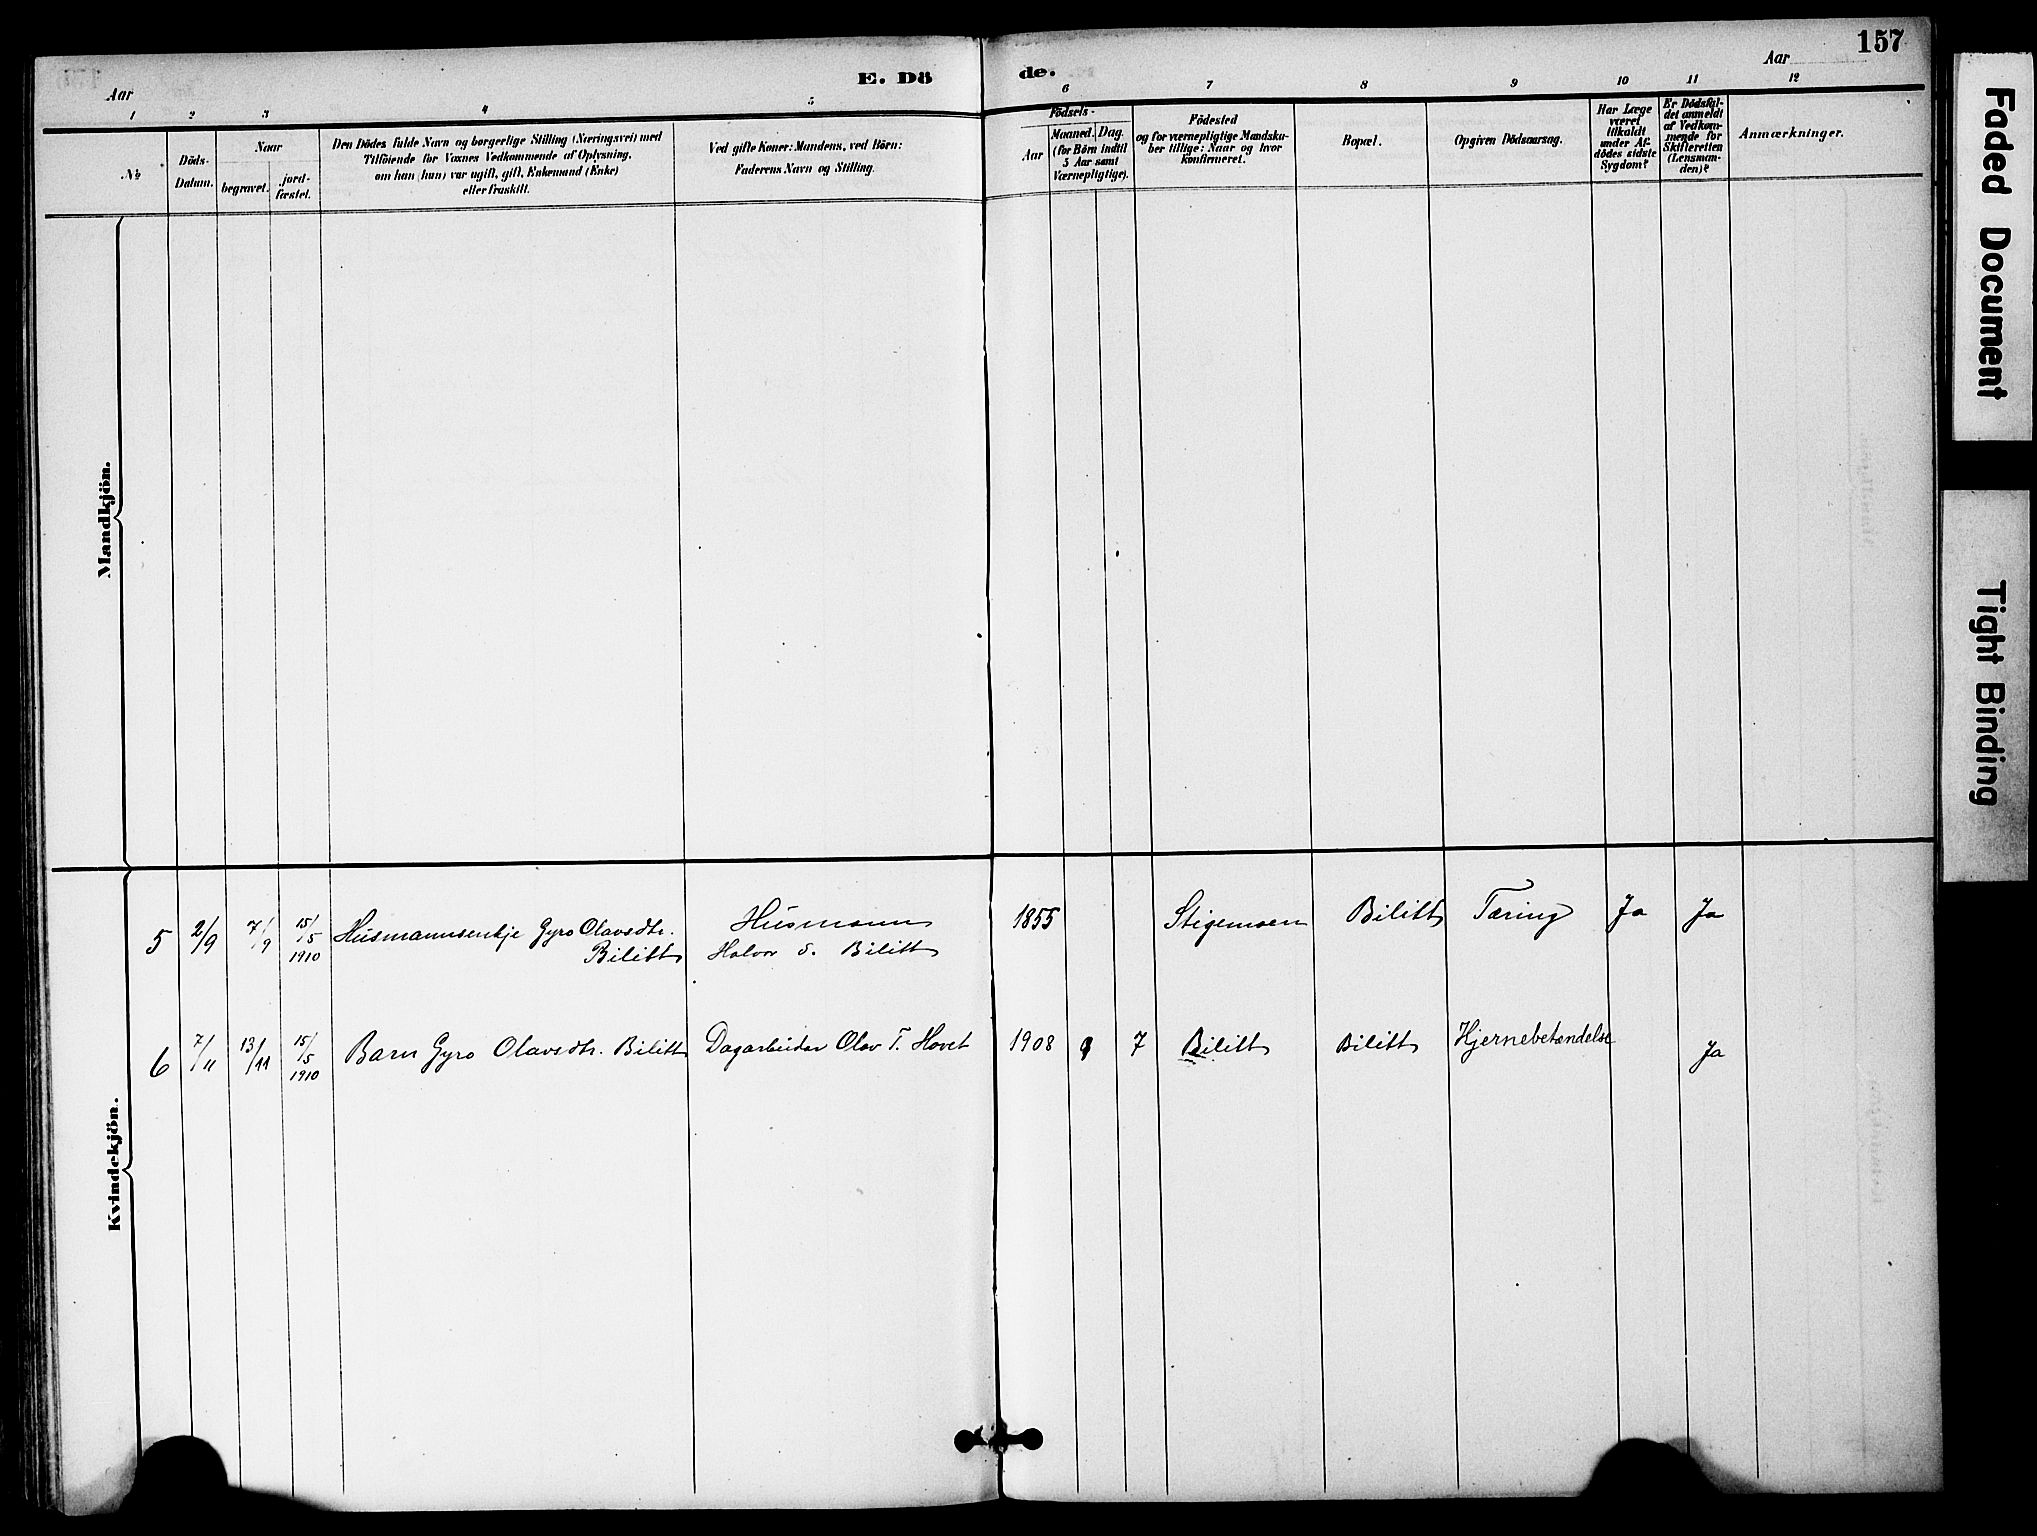 157
E. Dö de.
Aar
Aar
1 2 3 4 5 6 7 8 9 10 11 12
№
Döds-
Datum.
Naar
begravet.
jord-
fæstet.
Den Dödes fulde Navn og borgerlige Stilling (Næringsvei) med
Tilföiende for Voxnes Vedkommende af Oplysning,
om han (hun) var ugift, gift, Enkemand (Enke)
eller fraskilt.
Ved gifte Koner: Mandens, ved Börn:
Faderens Navn og Stilling.
Födsels-
Aar
Maaned. Dag.
(for Börn indtil
5 Aar samt
Værnepligtige).
Födested
og for værnepligtige Mandsku-
ber tillige: Naar og hvor
konfirmeret.
Bopæl.
Opgiven Dödsaarsag.
Har Læge
været
tilkaldt
under Af-
dödes sidste
Sygdom?
Er Dödsfal-
det anmeldt
af Vedkom-
mende for
Skifteretten
(Lensman-
den)?
Anmærkninger.
Mandkjön.
Kvindekjön.
5 2/9 7/9 15/5 1910 Husmannsenkje Gyro Olavsdtr. Husmann 1855 Stigemoen Bilitt Tæring Ja Ja
Bilitt Halvor S. Bilitt
6 7/11 13/11 15/5 1910 Barn Gyro Olavsdtr. Bilitt Dagarbeidar Olav T. Hovet 1908 9 7 Bilitt Bilitt Hjernebetændelse Ja
Faded Document
Tight Binding